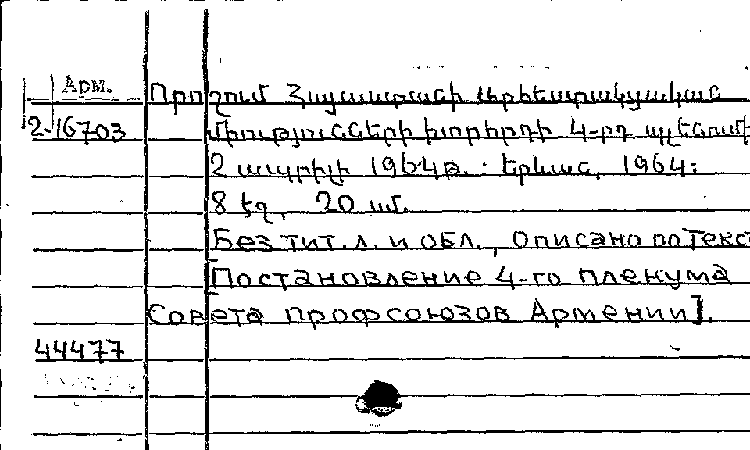 Арм.
Որոշում Հայաստանի արհեստակցական
2-16703 միությունների խորհրդի 4-րդ պլենումի
2 ապրիլի 1964թ. : Երևան, 1964:
8 էջ, 20 սմ.
Без тит. л. и обл., Описано по текс
[Постановление 4-го пленума
Совета профсоюзов Армении].
44477